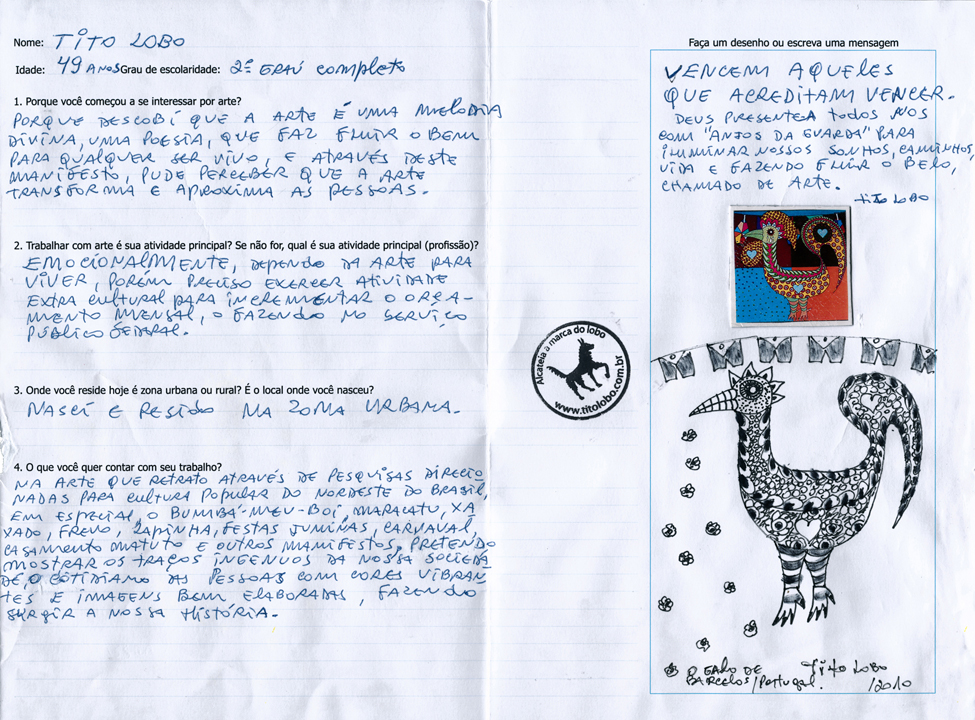 Nome: TITO LOBO
Idade: 49 ANOS Grau de escolaridade: 2º GRAÚ completo
1. Porque você começou a se interessar por arte?
PORQUE DESCOBÍ QUE A ARTE É UMA MELODIA
DIVINA, UMA POESIA, QUE FAZ FLUIR O BEM
PARA QUALQUER SER VIVO, E ATRAVÉS DESTE
MANIFESTO, PUDE PERCEBER QUE A ARTE
TRANSFORMA E APROXIMA AS PESSOAS.
2. Trabalhar com arte é sua atividade principal? Se não for, qual é sua atividade principal (profissão)?
EMOCIONALMENTE, DEPENDO DA ARTE PARA
VIVER, PORÉM PRECISO EXERCER ATIVIDADE
EXTRA CULTURAL PARA INCREMENTAR O ORÇA-
MENTO MENSAL, O FAZENDO NO SERVIÇO
PÚBLICO FEDERAL.
3. Onde você reside hoje é zona urbana ou rural? É o local onde você nasceu?
NASCÍ E RESIDO NA ZONA URBANA.
4. O que você quer contar com seu trabalho?
NA ARTE QUE RETRATO ATRAVÉS DE PESQUISAS DIRECIO
NADAS PARA CULTURA POPULAR DO NORDESTE DO BRASIL,
EM ESPECIAL, O BUMBÁ-MEU-BOÍ, MARACATU, XA
XADO, FREVO, LAPINHA, FESTAS JUNINAS, CARNAVAL,
CASAMENTO MATUTO E OUTROS MANIFESTOS, PRETENDO
MOSTRAR OS TRAÇOS INGENUOS DA NOSSA SOCIEDA
DE, O COTIDIANO DAS PESSOAS COM CORES VIBRAN
TES E IMAGENS BEM ELABORADAS, FAZENDO
SURGIR A NOSSA HISTÓRIA.
Alcateia a marca do lobo
www.titolobo.com.br
Faça um desenho ou escreva uma mensagem
VENCEM AQUELES
QUE ACREDITAM VENCER.
DEUS PRESENTEA TODOS NÓS
COM "ANJOS DA GUARDA" PARA
ILUMINAR NOSSOS SONHOS, CAMINHOS,
VIDA E FAZENDO FLUIR O BELO,
CHAMADO DE ARTE.
TITO LOBO
O GALO DE
BARCELOS/Portugal.
Tito LOBO
/2010